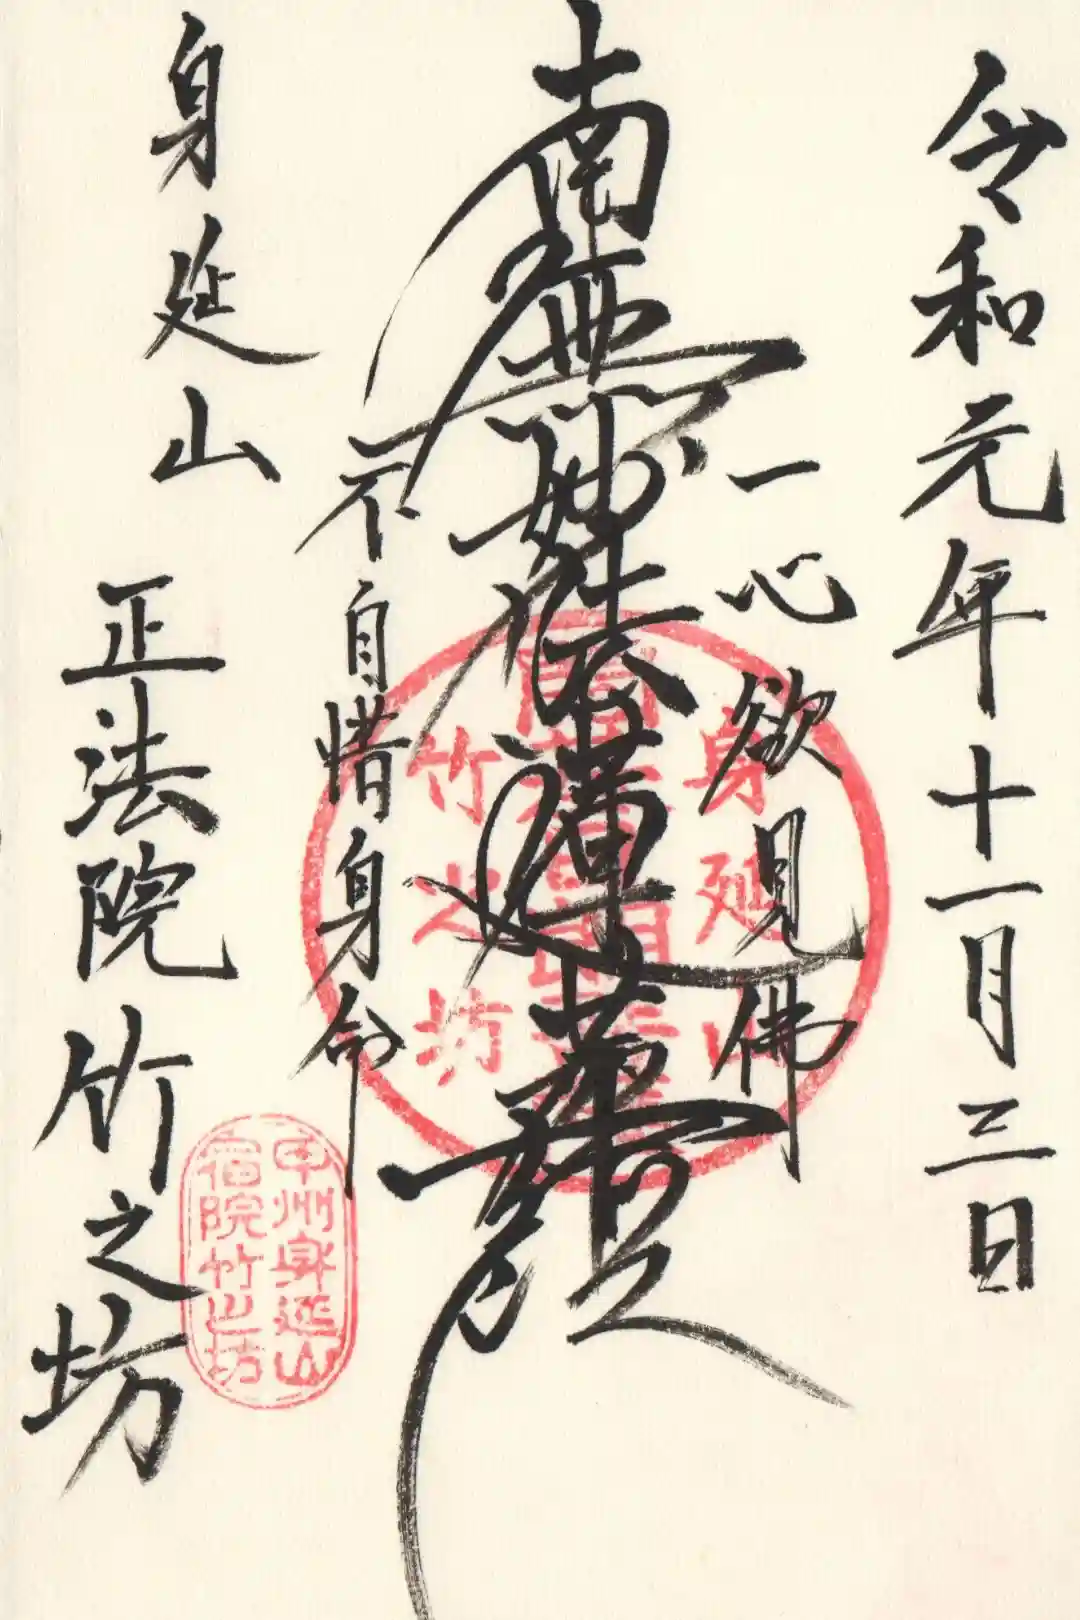 令和元年十一月三日
一心欲見佛
南無妙法蓮華經
不自惜身命
身延山
正法院 竹之坊
身延山
竹之坊
甲州身延山
宿院竹之坊